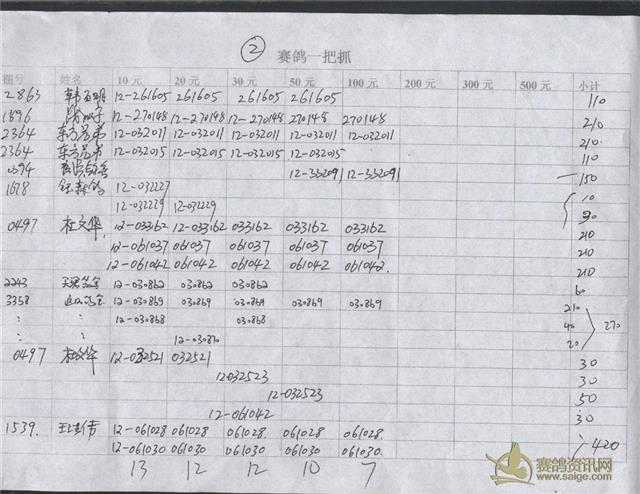 ② 赛鸽一把抓
棚号 姓名 10元 20元 30元 50元 100元 200元 300元 500元 小计
2863 12-261605 261605 261605 261605 110
1896 12-270148 12-270148 12-270148 270148 270148 210
2364 东方兄弟 12-032011 12-032011 12-032011 12-032011 12-032011 210
2364 东方兄弟 12-032015 12-032015 12-032015 12-032015 110
12-332091 12-332091 150
1678 12-032227 10
12-032229 12-032229 30
0497 杜文华 12-033162 12-033162 033162 033162 033162 210
12-061037 061037 061037 061037 061037 210
12-061042 061042 061042 061042 061042 210
2243 12-030862 030862 030862 60
3358 12-030869 030869 030869 030869 030869 210
: : 12-030868 030868 40 270
: : 12-030870 20
0497 杜文华 12-032521 032521 30
12-032523 30
12-032523 50
12-061042 30
1539. 12-061028 061028 061028 061028 061028
12-061030 061030 061030 061030 061030 420
13 12 12 10 7
赛鸽资讯网
www.saige.com